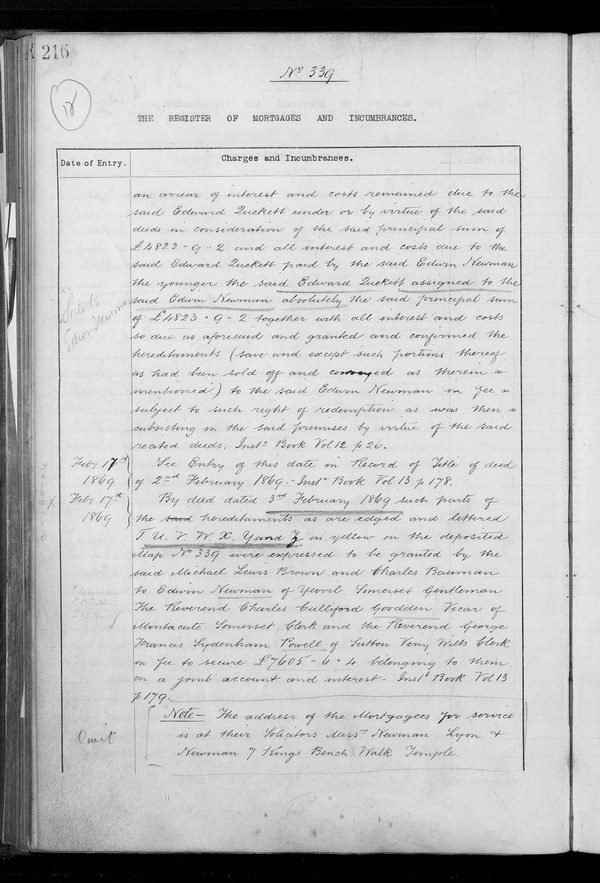 216
Nº 339
18
THE REGISTER OF MORTGAGES AND INCUMBRANCES.
Date of Entry.
Charges and Incumbrances.
an arrear of interest and costs remained due to the
said Edward Quekett under or by virtue of the said
deeds in consideration of the said principal sum of
£4823-9-2 and all interest and costs due to the
said Edward Quekett paid by the said Edwin Newman
the younger the said Edward Quekett assigned to the
said Edwin Newman absolutely the said principal sum
of £4823-9-2 together with all interest and costs
so due as aforesaid and granted and confirmed the
hereditaments (save and except such portions thereof
as had been sold off and conveyed as therein
mentioned) to the said Edwin Newman in fee
subject to such right of redemption as was then
subsisting in the said premises by virtue of the said
recited deeds. Inst^t Book Vol 12 p 26.
Feby 17th
1869
See Entry of this date in Record of Title of deed
of 2nd February 1869. Inst^t Book Vol 13 p 178.
Feby 17th
1869
By deed dated 3rd February 1869 such parts of
the said hereditaments as are edged and lettered
T. U. V. W. X. Y and Z in yellow on the deposited
Map Nº 339 were expressed to be granted by the
said Michael Lewis Brown and Charles Bauman
to Edwin Newman of Yeovil Somerset Gentleman
The Reverend Charles Culliford Goodden Vicar of
Montacute Somerset Clerk and the Reverend George
Francis Sydenham Powell of Sutton Veny Wilts Clerk
in fee to secure £7605-6-4 belonging to them
on a joint account and interest. Inst^t Book Vol 13
p 179.
Omit
Note- The address of the Mortgagees for service
is at their Solicitors Mess^rs Newman Lyon &
Newman 7 Kings Bench Walk Temple.